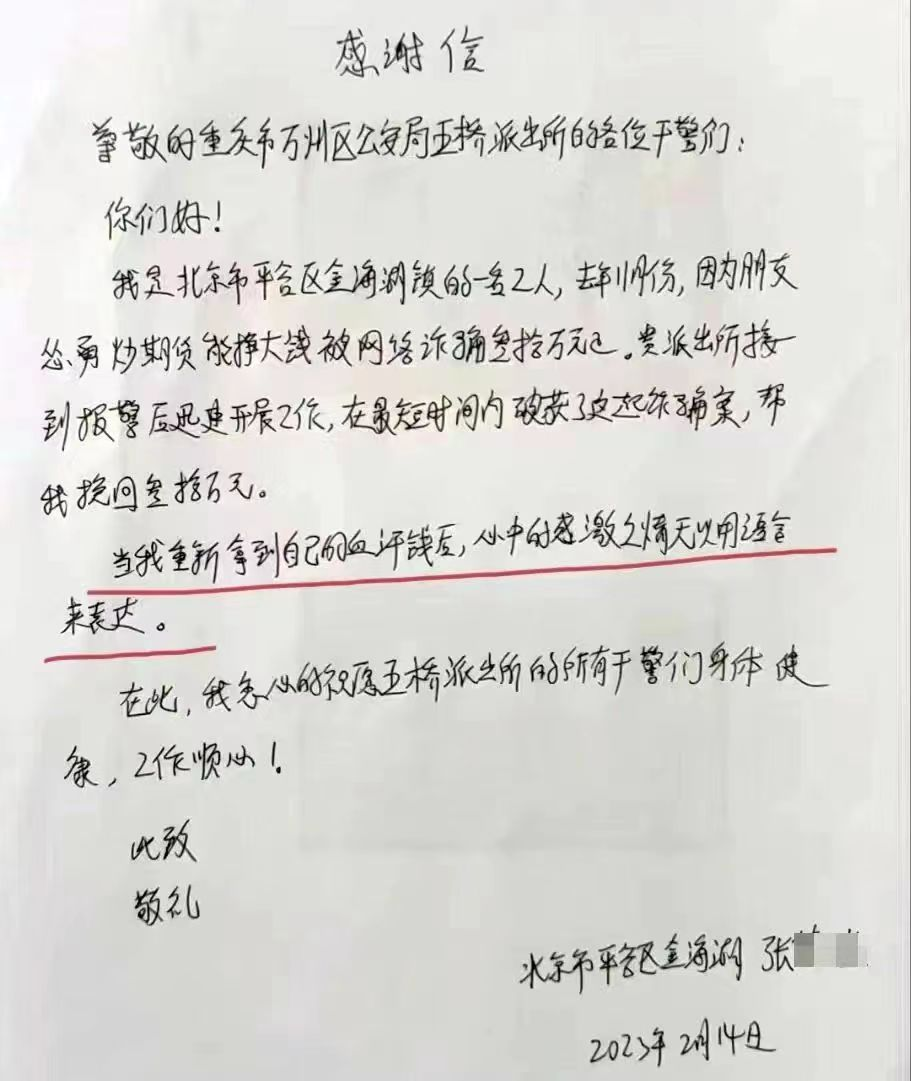 感谢信
尊敬的重庆市万州区公安局五桥派出所的各位干警们:
你们好!
我是北京市平谷区金海湖镇的一名工人,去年11月份,因为朋友
怂勇炒期货能挣大钱被网络诈骗叁拾万元正。贵派出所接
到报警后迅速开展工作,在最短时间内破获了这起诈骗案,帮
我挽回叁拾万元。
当我重新拿到自己的血汗钱后,心中的感激之情无以用语言
来表达。
在此,我衷心的祝愿五桥派出所的所有干警们身体健
康,工作顺心!
此致
敬礼
北京市平谷区金海湖 张
2023年2月14日